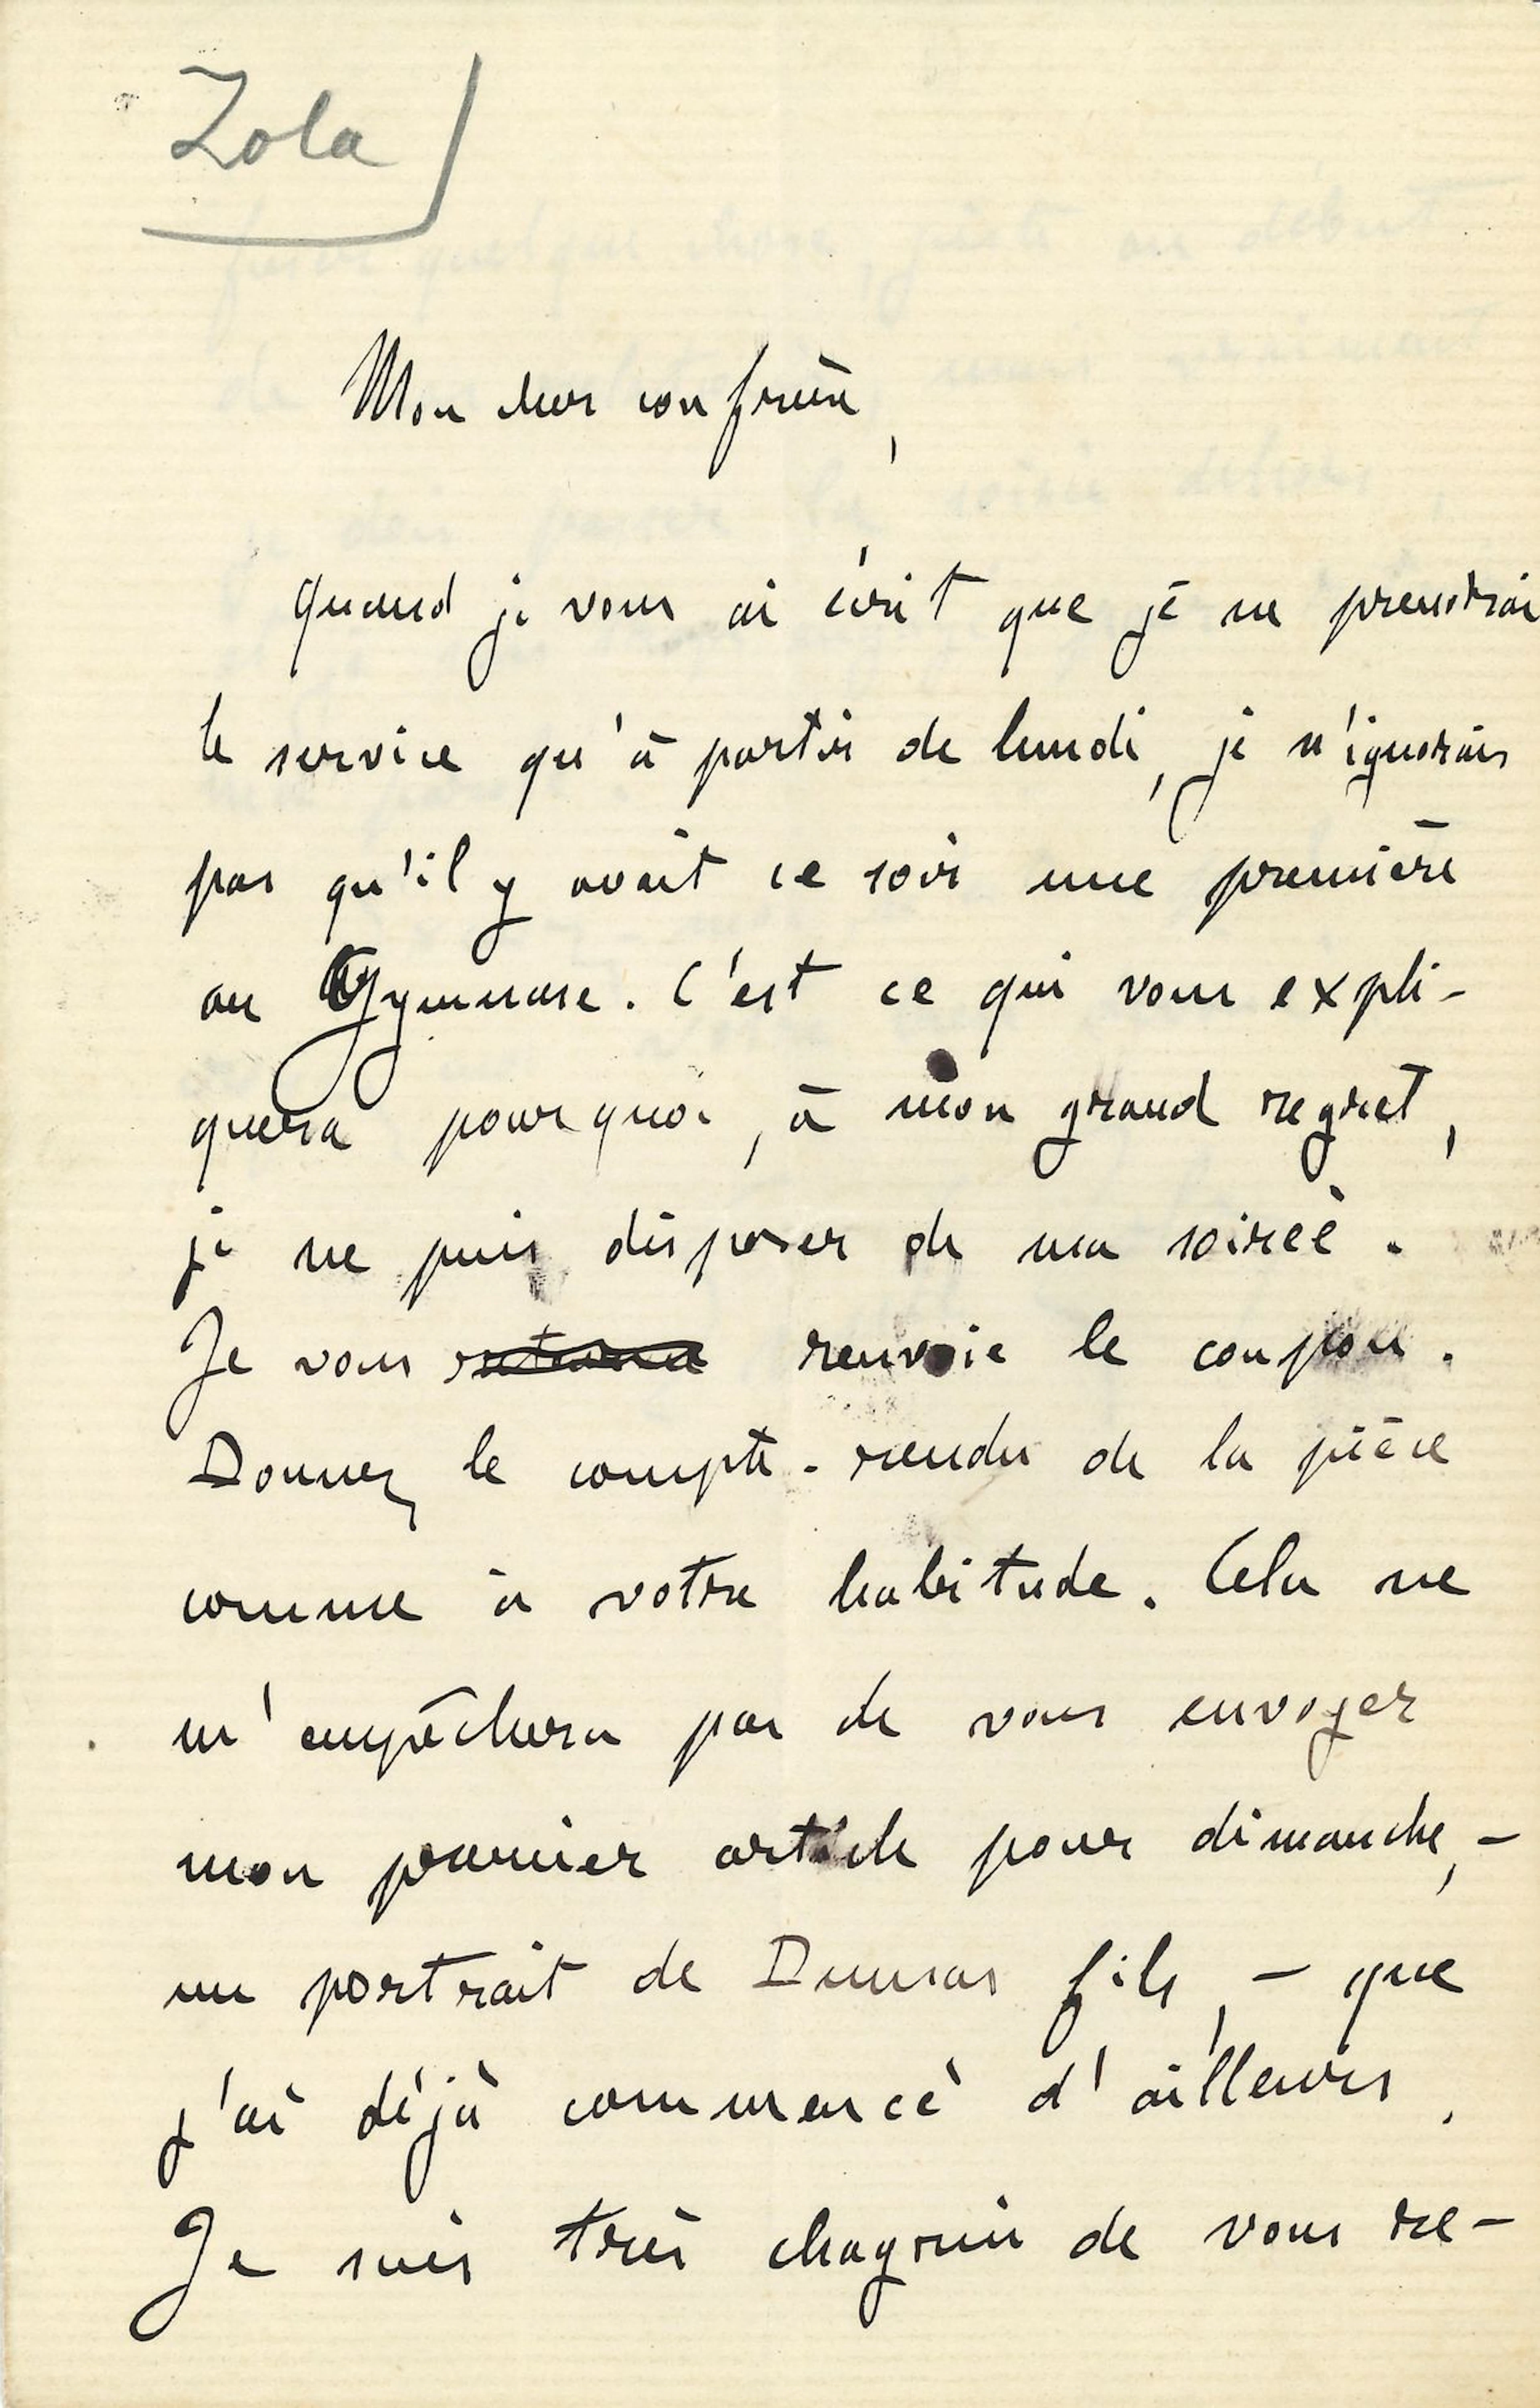 Zola
Mon cher confrère,
Quand je vous ai écrit que je ne prendrai
le service qu'à partir de lundi, je n'ignorais
pas qu'il y avait ce soir une première
au Gymnase. C'est ce qui vous expli-
quera pourquoi, à mon grand regret,
je ne puis disposer de ma soirée.
Je vous renvoie le coupon.
Donnez le compte-rendu de la pièce
comme à votre habitude. Cela ne
m'empêchera pas de vous envoyer
mon premier article pour dimanche, -
un portrait de Dumas fils, - que
j'ai déjà commencé d'ailleurs.
Je suis très chagrin de vous re-